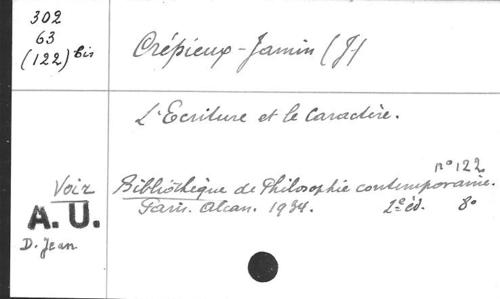 302
63
(122) bis
Crépieux-Jamin (J)
L'Ecriture et le Caractère.
n° 122
Voir Bibliothèque de Philosophie contemporaine.
A.U. Paris. Alcan. 1934. 2e éd. 8°
D. Jean